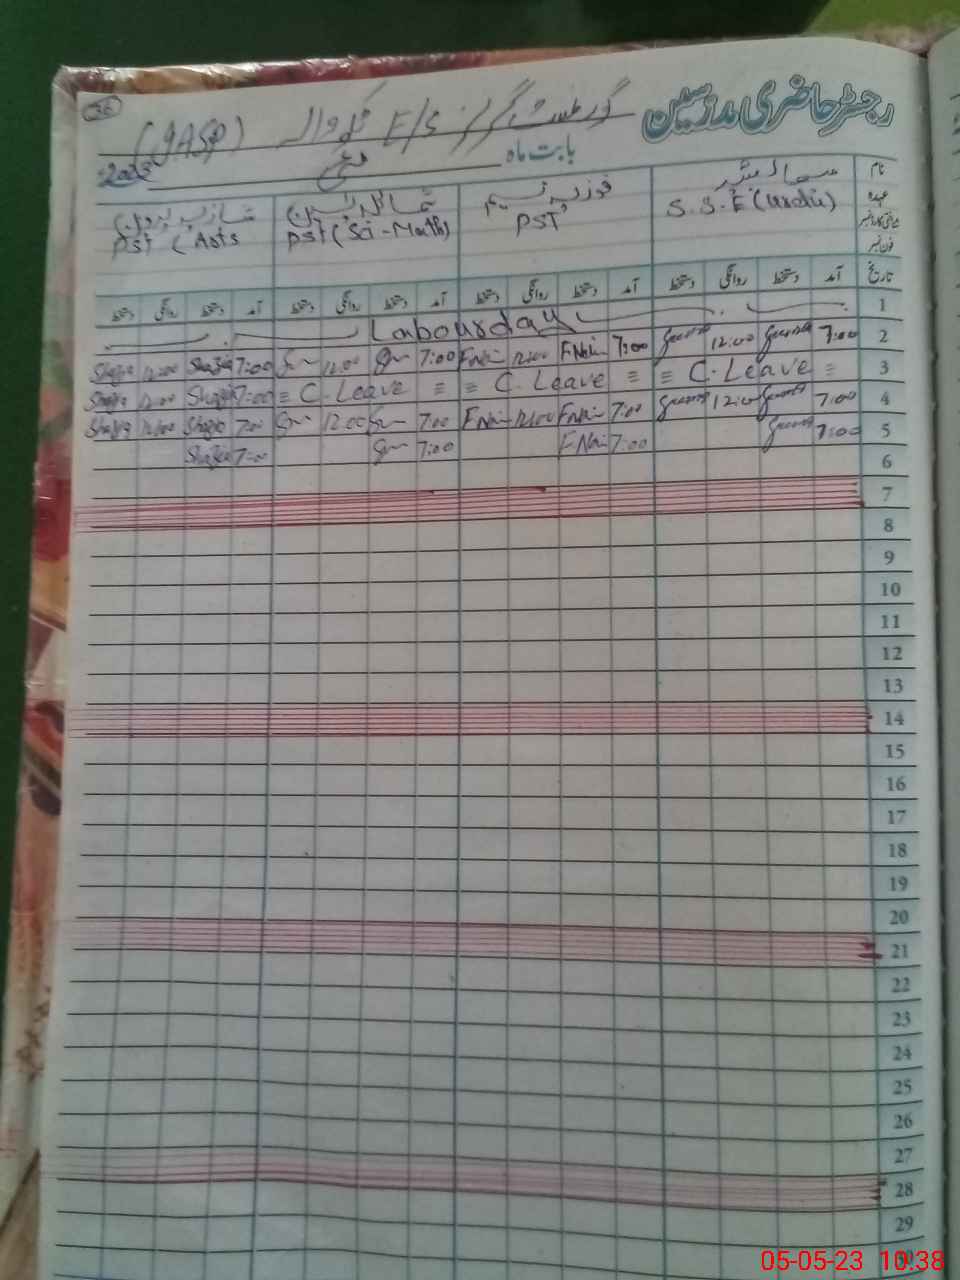 36
رجسٹر حاضری مدرسین
گورنمنٹ گرلز E/S والہ (GASP)
بابت ماہ مئی 2023
نام
عہدہ
S.S.E (Urdu) فوزیہ نسیم PST PST (Sci-Math) شازیہ پروین PST (Arts
فون نمبر
تاریخ آمد دستخط روانگی دستخط آمد دستخط روانگی دستخط آمد دستخط روانگی دستخط آمد دستخط روانگی دستخط
1 Labourday
2 7:00 12:00 7:00 F.Nasim 12:00 F.Nasim 7:00 12:00 7:00 Shazia 12:00 Shazia
3 ≡ C.Leave ≡ ≡ C.Leave ≡ ≡ C.Leave ≡ 7:00 Shazia 12:00 Shazia
4 7:00 12:00 7:00 F.Nasim 12:00 F.Nasim 7:00 12:00 7:00 Shazia 12:00 Shazia
5 7:00 7:00 F.Nasim 7:00 7:00 Shazia
6
7
8
9
10
11
12
13
14
15
16
17
18
19
20
21
22
23
24
25
26
27
28
29
30
05-05-23 10:38